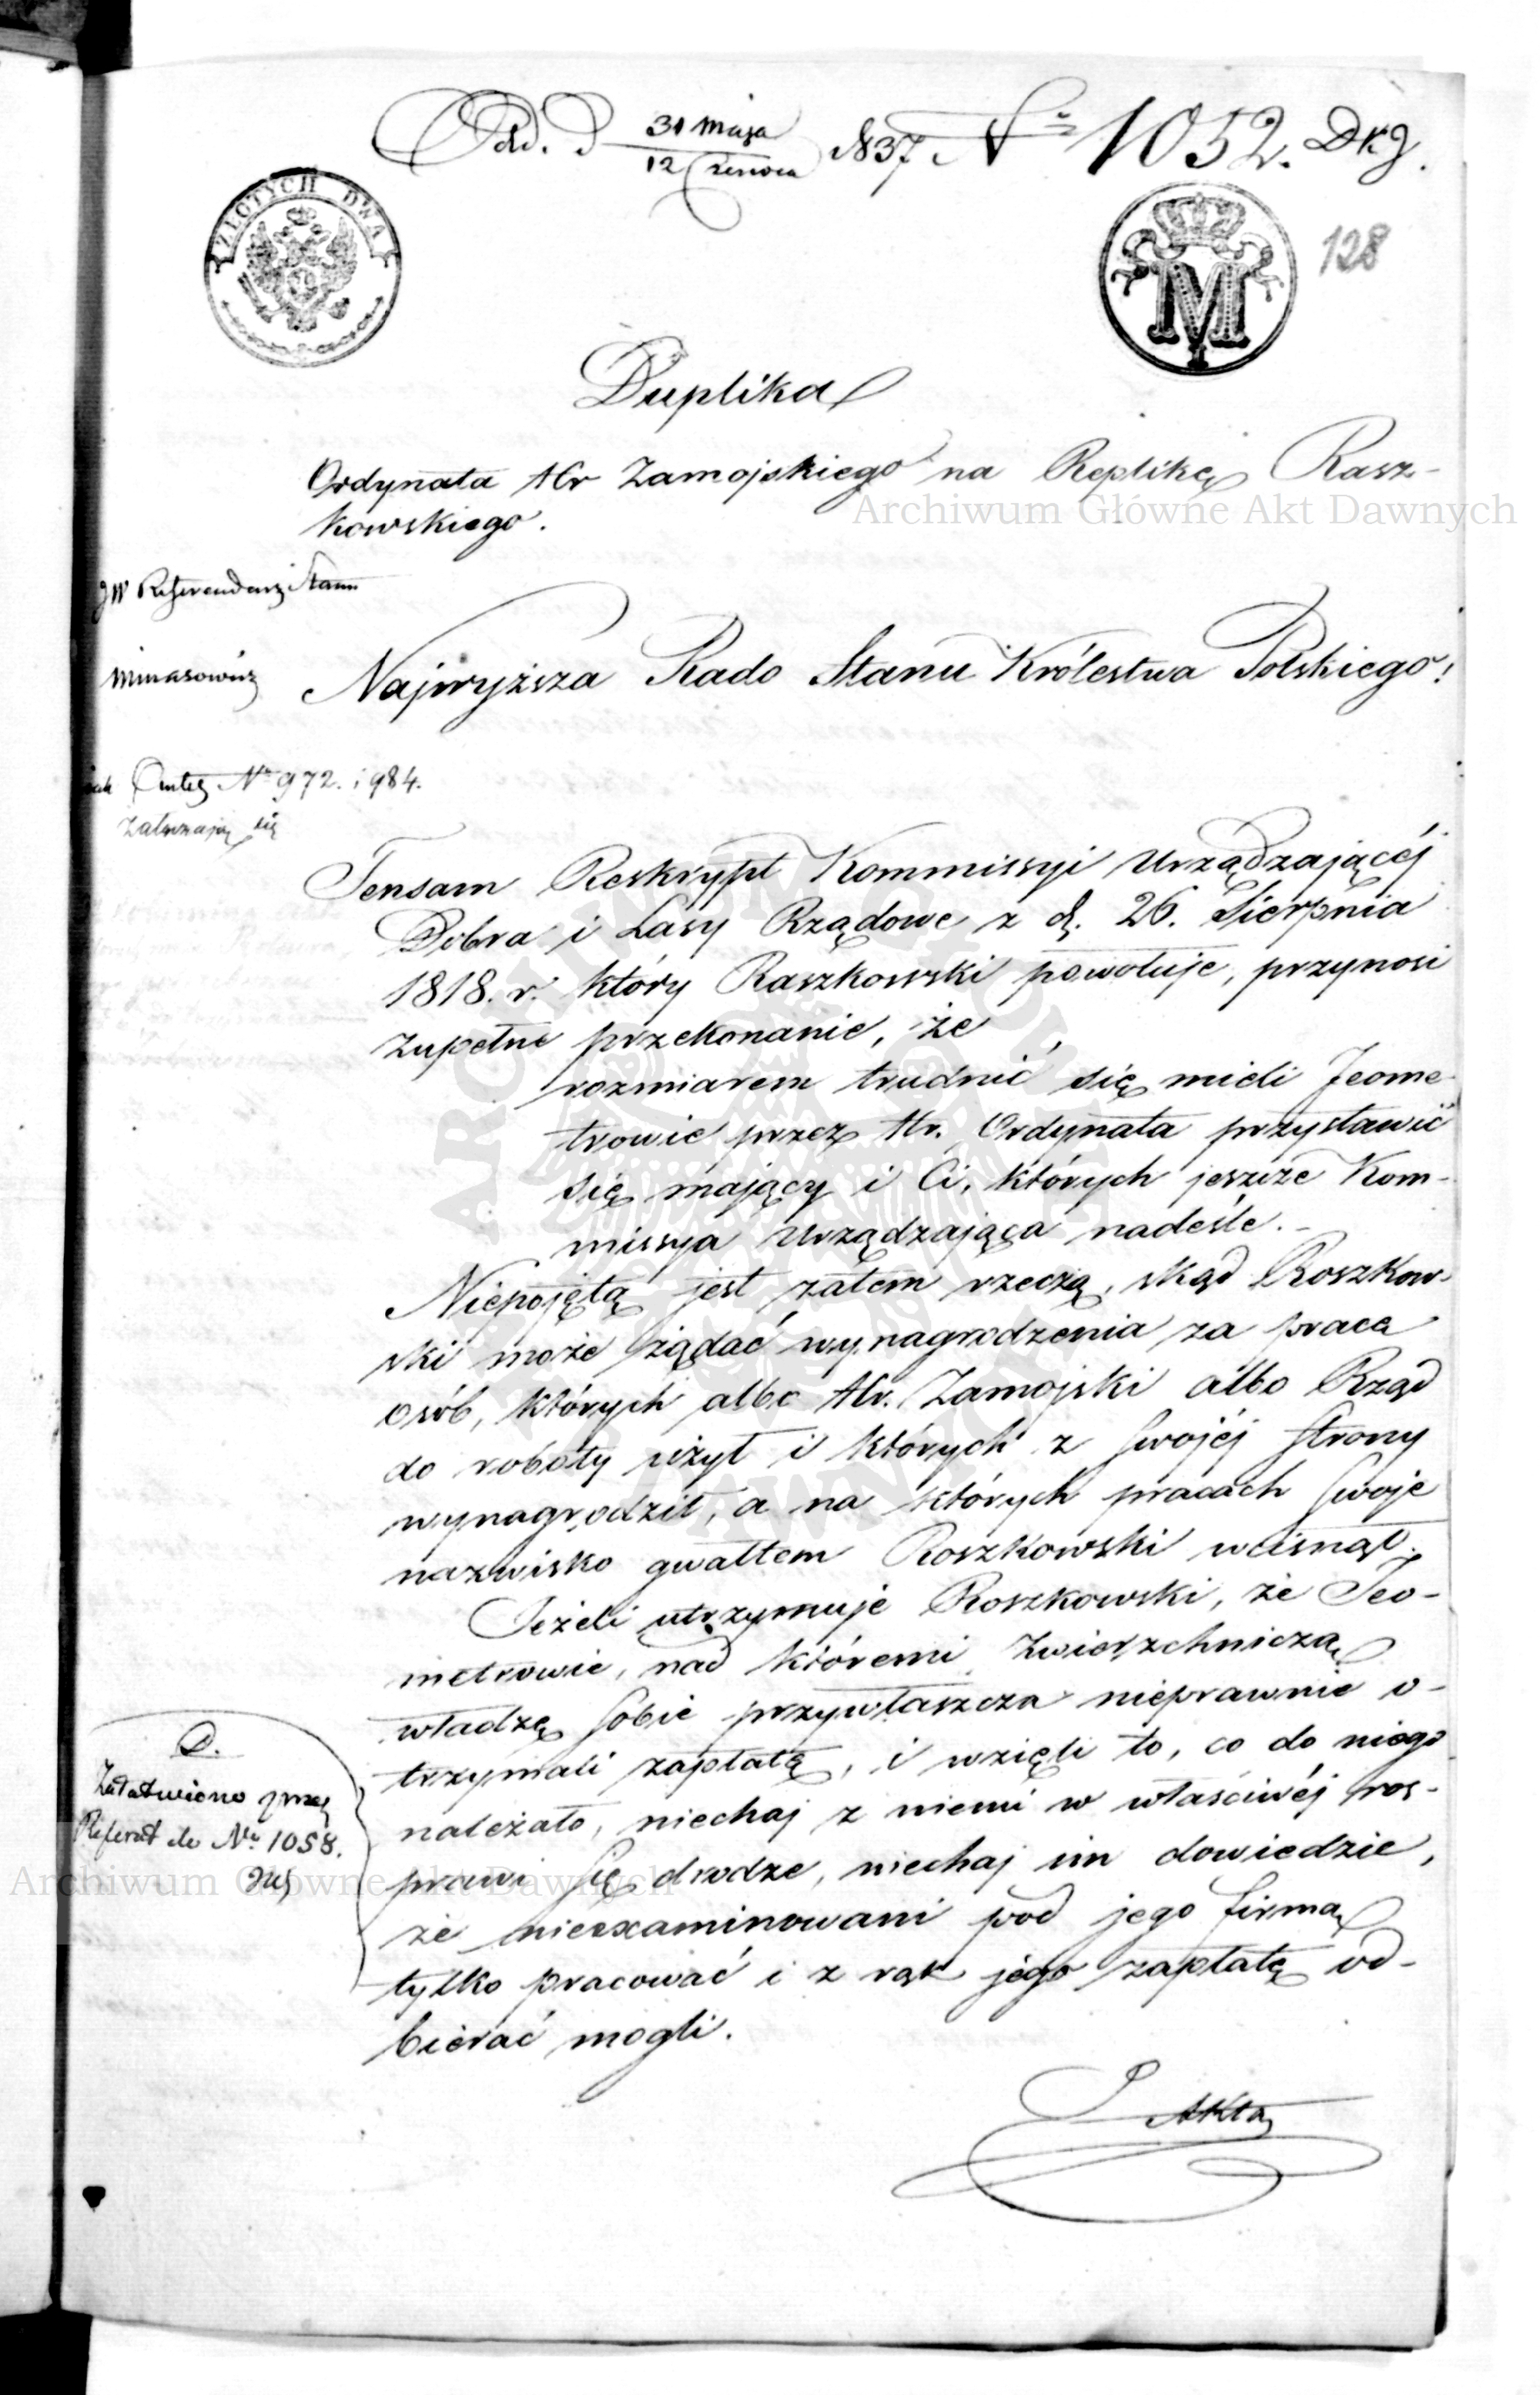 Odd. D 31 Maja / 12 Czerwca 1837 Nr 1052. Dkg.
ZŁOTYCH DWA
M
128
Duplika
Ordynata Hr Zamojskiego na Replikę Rasz-
kowskiego.
JW Referendarz Stanu
Minasowicz
Najwyższa Rado Stanu Królestwa Polskiego!
Nr 972. i 984.
załączają się
Tensam Reskrypt Kommissyi Urządzającéj
Dobra i Lasy Rządowe z d. 26. Sierpnia
1818. r. który Raszkowski powołuje, przynosi
zupełne przekonanie, że
rozmiarem trudnić się mieli Jeome-
trowie przez Hr. Ordynata przystawić
się mający i Ci, których jeszcze Kom-
missya Urządzająca nadeśle. -
Niepojętą jest zatem rzeczą, skąd Roszkow-
ski może żądać wynagrodzenia za prace
osób, których albo Hr. Zamojski albo Rząd
do roboty użył i których z swojéj strony
wynagrodził, a na których pracach swoje
nazwisko gwałtem Roszkowski wcisnął.
Jeżeli utrzymuje Roszkowski, że Jeo-
metrowie, nad któremi zwierzchniczą
władzę sobie przywłaszcza nieprawnie o-
trzymali zapłatę, i wzięli to, co do niego
należało, niechaj z niemi w właściwéj roz-
prawi się drodze, niechaj im dowiedzie,
że nieexaminowani pod jego firmą
tylko pracować i z rąk jego zapłatę od-
bierać mogli.
D.
Załatwiono przez
Referat do Nr 1058.
Akta
Archiwum Główne Akt Dawnych
Archiwum Główne Akt Dawnych